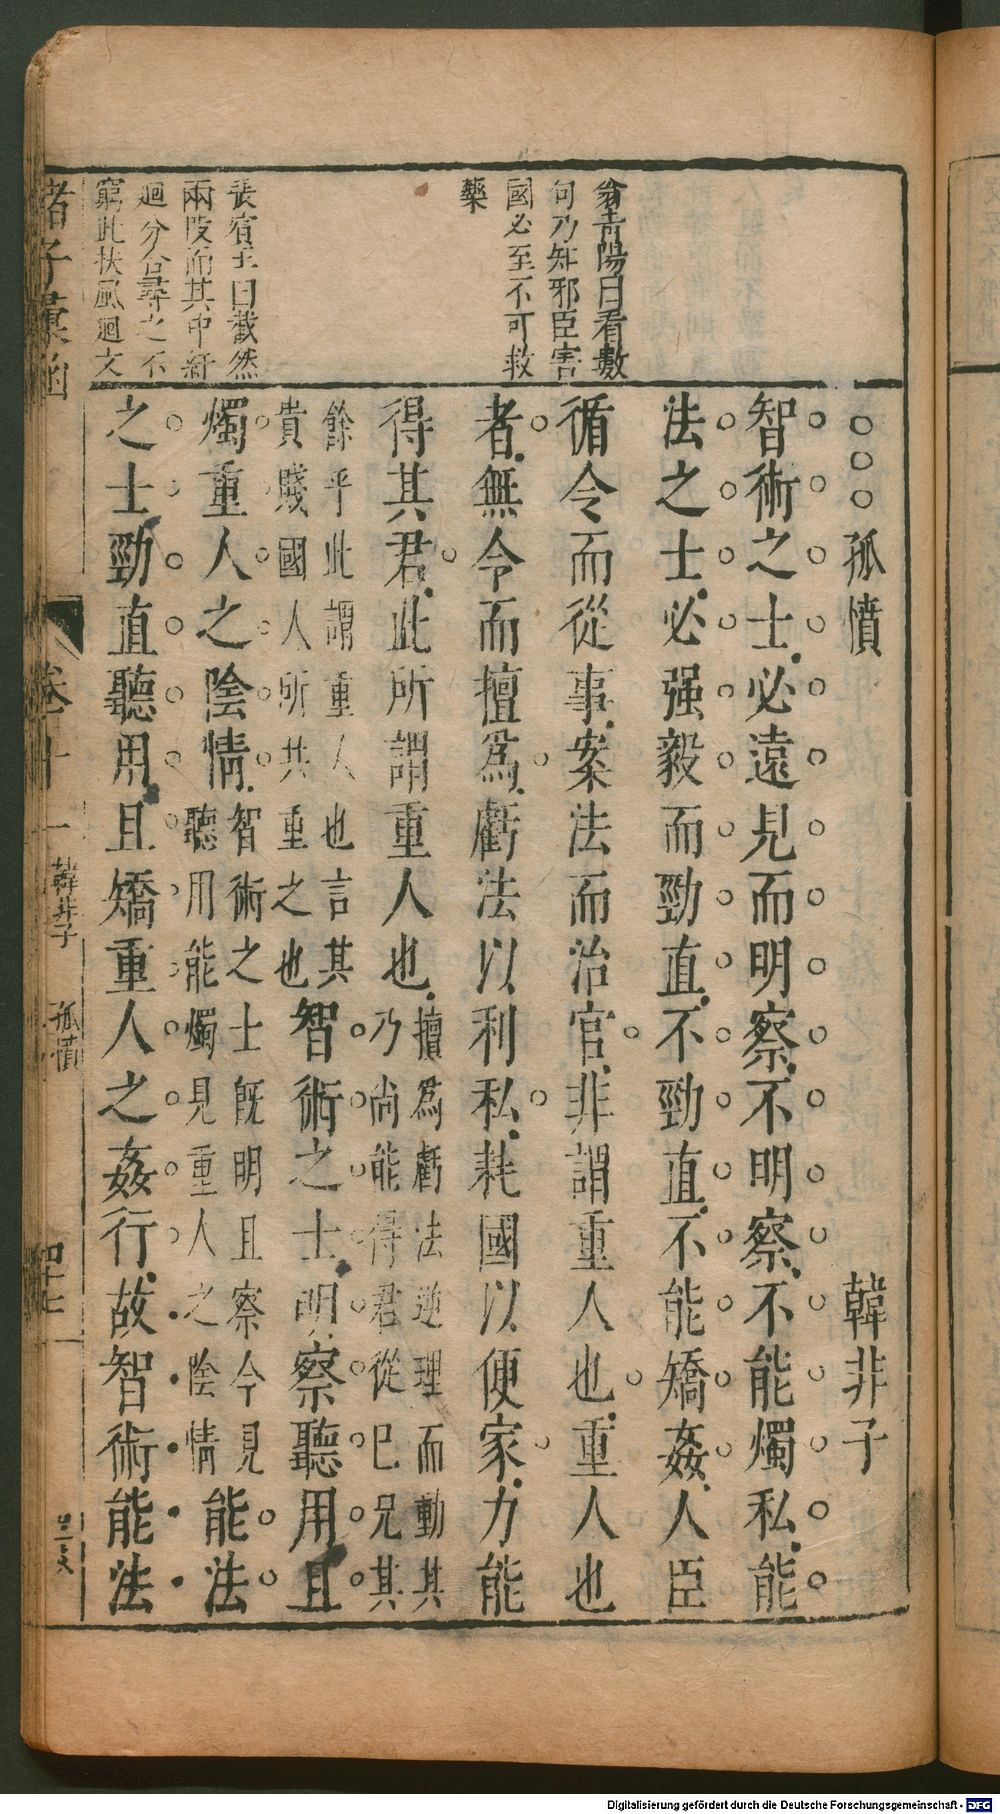 孤憤 韓非子
智術之士必遠見而明察不明察不能燭私能
法之士必强毅而勁直不勁直不能矯姦人臣
循令而從事案法而治官非謂重人也重人也
者無令而擅爲虧法以利私耗國以便家力能
得其君此所謂重人也擅爲虧法逆理而動其
乃尚能得君從已兄其
餘乎此謂重人也言其
貴賤國人所共重之也智術之士明察聽用且
燭重人之陰情智術之士旣明且察今見
聽用能燭見重人之陰情能法
之士勁直聽用且矯重人之姦行故智術能法
翁青陽曰看數
句乃知邪臣害
國必至不可救
藥
張賓王曰截然
兩段而其中紆
廻分合尋之不
窮此扶風廻文
諸子彙函
卷十一
韓非子
孤憤
四十七
Digitalisierung gefördert durch die Deutsche Forschungsgemeinschaft - DFG